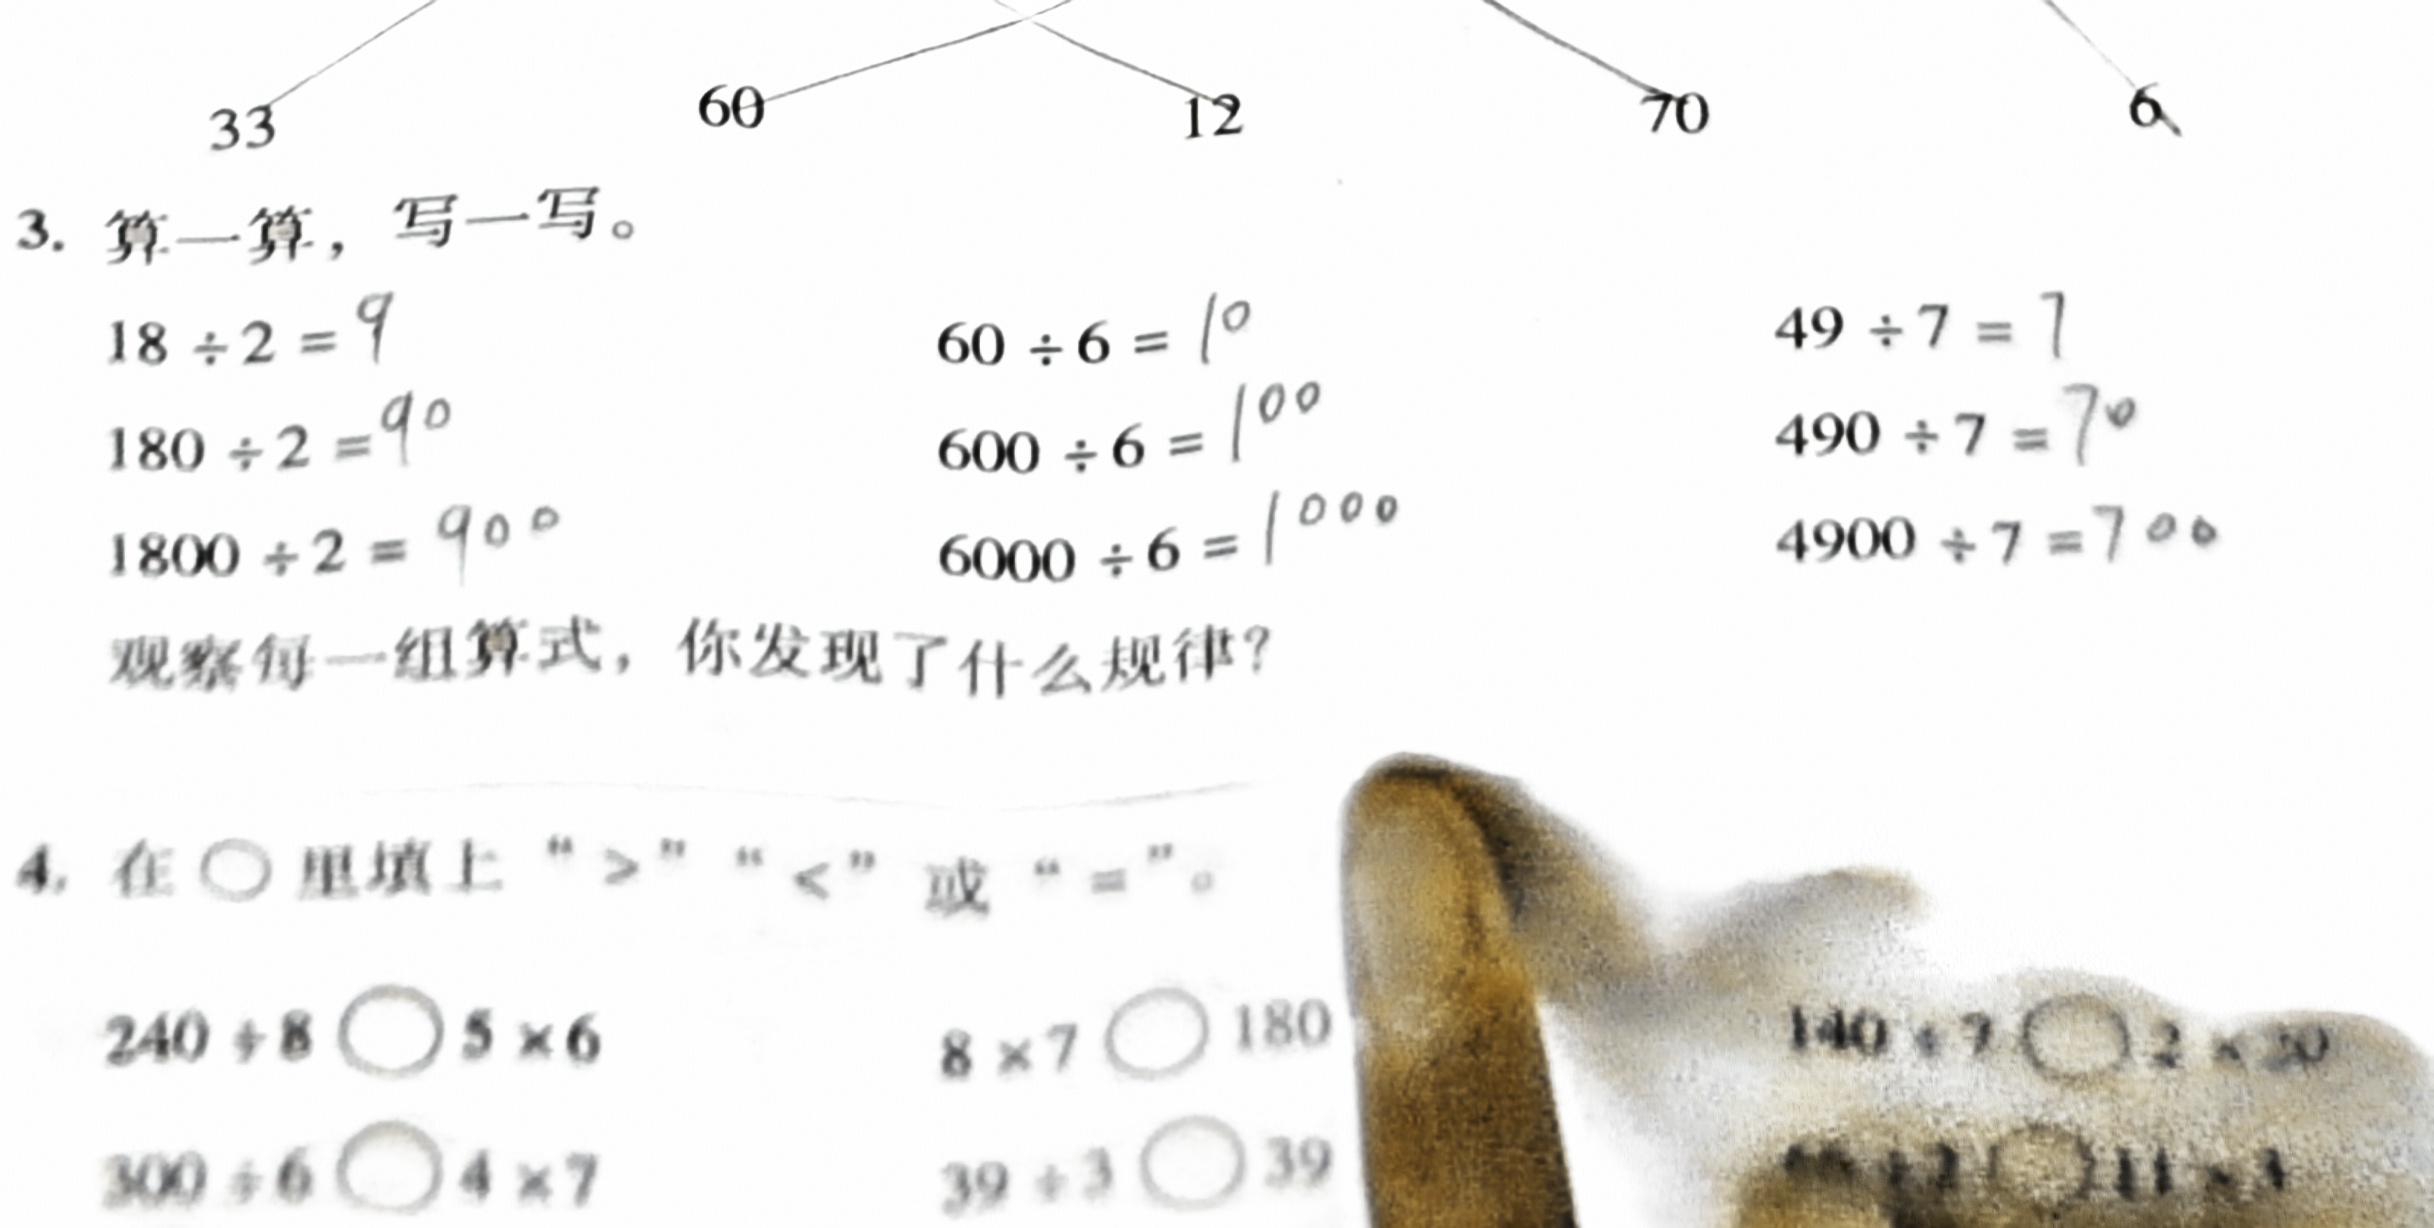 33 60 12 70 6
3. 算一算，写一写。
18 ÷ 2 = 9 60 ÷ 6 = 10 49 ÷ 7 = 7
180 ÷ 2 = 90 600 ÷ 6 = 100 490 ÷ 7 = 70
1800 ÷ 2 = 900 6000 ÷ 6 = 1000 4900 ÷ 7 = 700
观察每一组算式，你发现了什么规律？
4. 在 ○ 里填上 “ > ” “ < ” 或 “ = ”。
240 ÷ 8 ○ 5 × 6 8 × 7 ○ 180 140 ÷ 7 ○ 2 ×
300 ÷ 6 ○ 4 × 7 39 ÷ 3 ○ 39